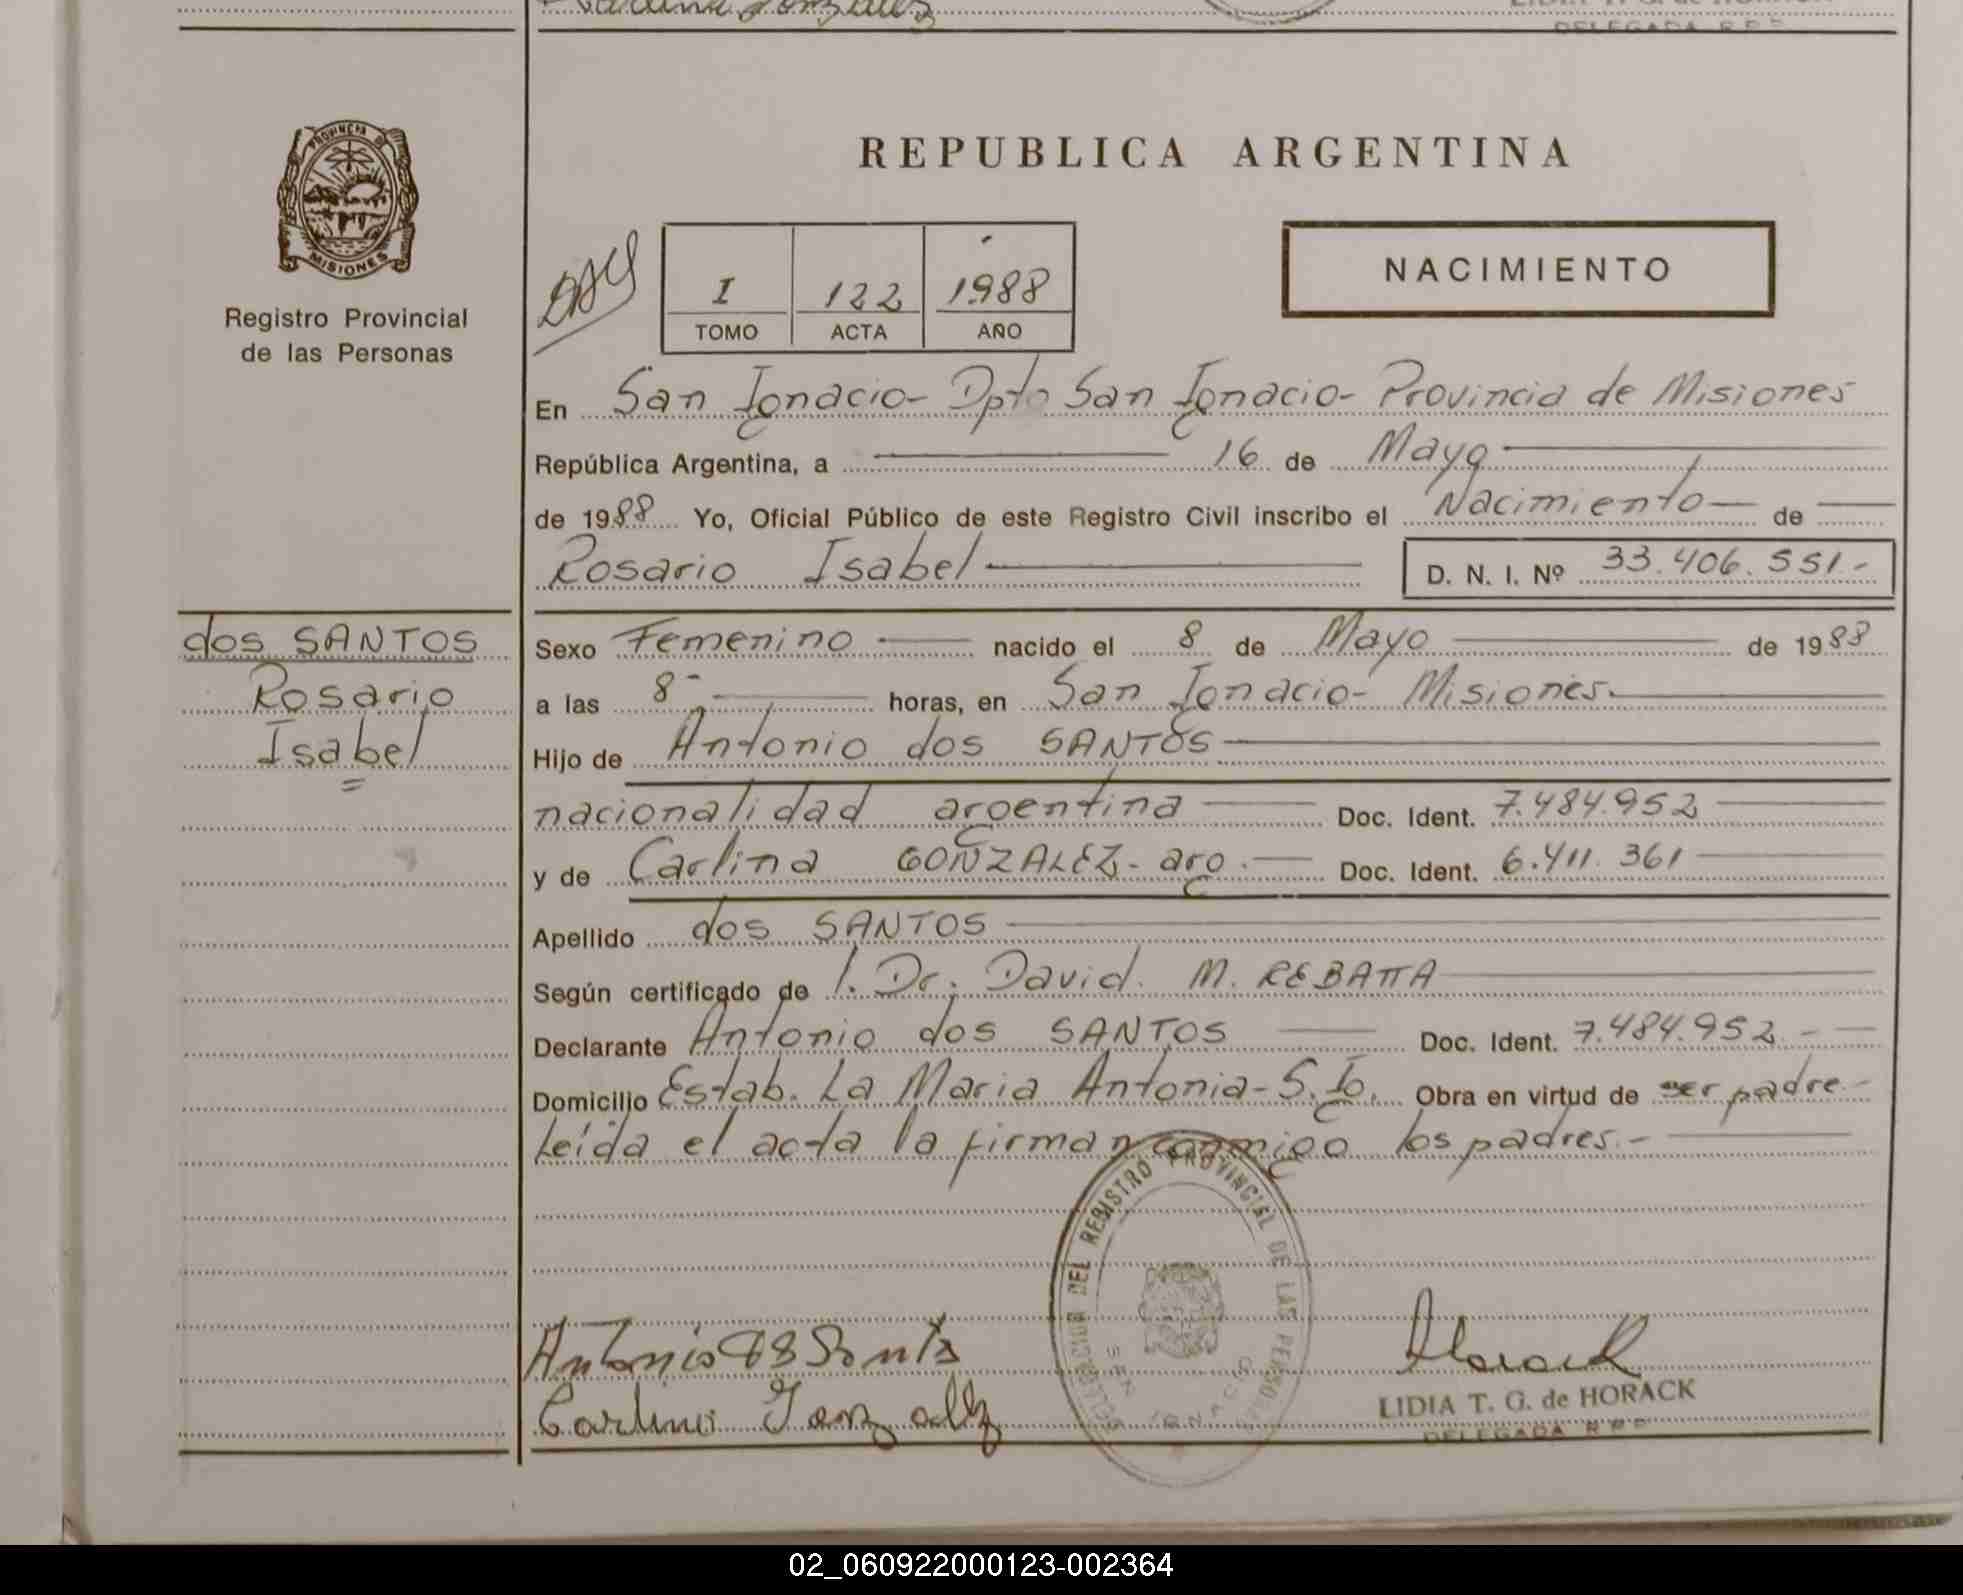 PROVINCIA DE
MISIONES
Registro Provincial
de las Personas
dos SANTOS
Rosario
Isabel
REPUBLICA ARGENTINA
I 122 1988
TOMO ACTA AÑO
NACIMIENTO
En San Ignacio- Dpto San Ignacio- Provincia de Misiones
República Argentina, a 16 de Mayo
de 1988 Yo, Oficial Público de este Registro Civil inscribo el Nacimiento de
Rosario Isabel D. N. I. Nº 33.406.551.-
Sexo Femenino nacido el 8 de Mayo de 1988
a las 8- horas, en San Ignacio- Misiones.
Hijo de Antonio dos SANTOS
nacionalidad argentina Doc. Ident. 7.484.952
y de Carlina GONZALEZ- arg. Doc. Ident. 6.411.361
Apellido dos SANTOS
Según certificado de l. Dr. David. M. REBATTA
Declarante Antonio dos SANTOS Doc. Ident. 7.484.952.-
Domicilio Estab. La Maria Antonia- S. Ig. Obra en virtud de ser padre.-
Leída el acta la firman conmigo los padres.-
DELEGACION DEL REGISTRO PROVINCIAL DE LAS PERSONAS
SAN IGNACIO
Antonio dos Santos
Carlina Gonzalez
Horack
LIDIA T. G. de HORACK
DELEGADA R P P
02_060922000123-002364